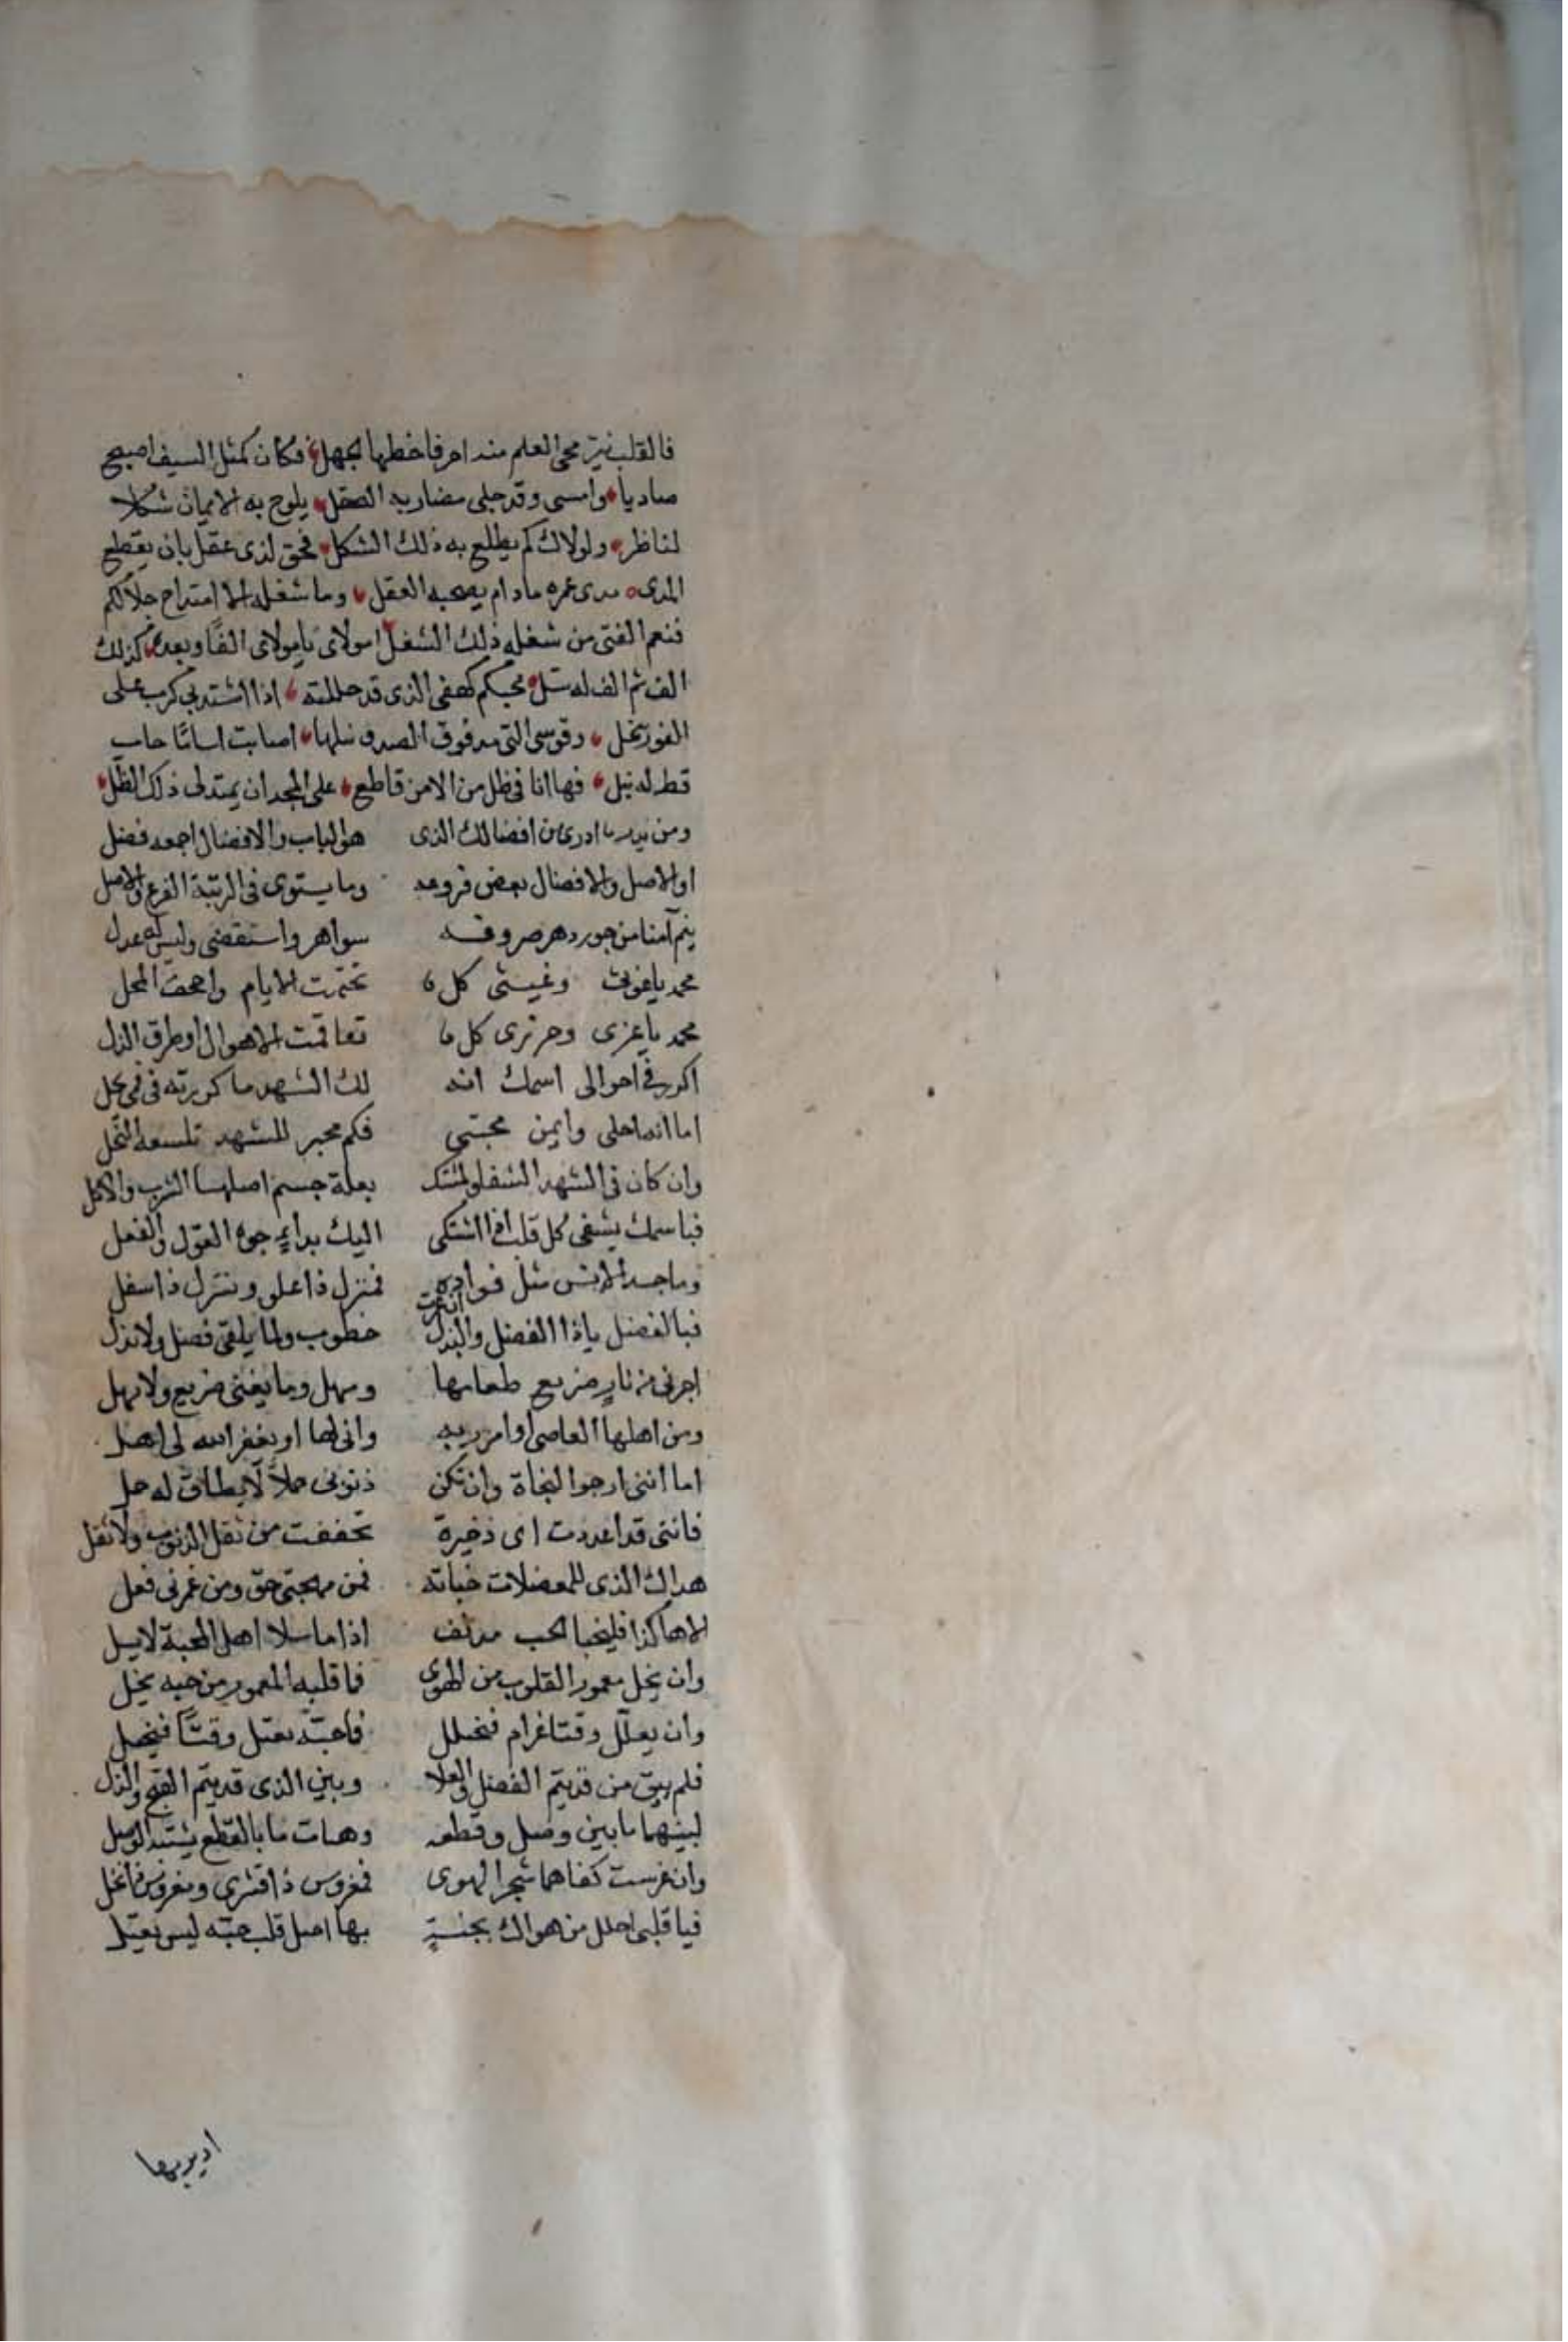 فالقلب نير محى العلم منه احرفا خطها الجهل فكان كمثل السيف اصبح
صاديا وامسى وقد جلى مضاربه الصقل يلوح به الايمان شكلا
لناظر ولولاك لم يطلع به ذلك الشكل فحق لذى عقل بان يقطع
المدى مدى عمره مادام يصحبه العقل وما شغله الا امتداح جلالكم
فنعم الفتى من شغله ذلك الشغل امولاى يا مولاى الفا وبعده كذلك
الف ثم الف له تتل محبكم كهفى الذى قد حللته اذا اشتد بى كرب على
الفور ينحل وقوسى التى مد فوق الصدق نبلها اصابت اسانا خاب
قط له نبل فها انا فى ظل من الامن قاطع على المجد ان يمتد لى ذلك الظل
ومن ادرى من افضالك الذى هو الباب والافضال اجمعه فضل
او الاصل والافضال بعض فروعه وما يستوى فى الرتبة الفرع والاصل
آمنا من جور دهر صروفه سواهر واستقضى وليس له عدل
محمد ياغوثى وغيثى كل ما تختمت الايام واجحف المحل
محمد يا عزى وحرزى كل ما تعاقمت الاهوال او طرق الذل
اكرر فى احوالى اسمك انه لك الشهد ما كررته فى فمى يحل
اما انه احلى وايمن مجتبى فكم مخبر للشهد تلسعه النحل
وان كان فى الشهد الشفا لمشتك بعلة جسم اصلها الشرب والاكل
فباسمك يشفى كل قلب اذا اشتكى اليك بداء جوه القول والفعل
وما جسد الانس مثل فواده فمنزل ذا علو ومنزل ذا سفل
فبالفضل ياذا الفضل والبذل انمحت خطوب ولما يلقى فضل ولا بذل
اجرنى من نار ضريع طعامها ومهل وما يغنى ضريع ولا مهل
ومن اهلها العاصى اوامر ربه وانى لها او يغفر الله لى اهل
اما اننى ارجوا النجاة وان تكن ذنوبى حملا لا يطاق له حمل
فاننى قد اعددت اى ذخيرة تخففت من ثقل الذنوب ولا ثقل
هداك الذى للمعضلات خبأته فمن مهجتى حق ومن غمرنى فعل
الا هاكذا فليخبأ الحب مدنف اذا ما سلا اهل المحبة لا يسل
وان يخل معمور القلوب من الهوى فما قلبه المعمور من حبه يخل
وان يعلل وقتا غرام فنحلل فاحبه يعتل وقتا فيخل
فلم يبق من قد يتم الفضل والعلا وبين الذى قد يتم القبح والذل
لبينهما ما بين وصل وقطعه وهات ما بالقطع يشتبه الوصل
وان غرست كفاهما شجر الهوى فمغروس ذا قشرى ومغروس ذا نخل
فيا قلبى احلل من هواك بجنة بها اصل قلب حبه ليس يعتل
اديربها